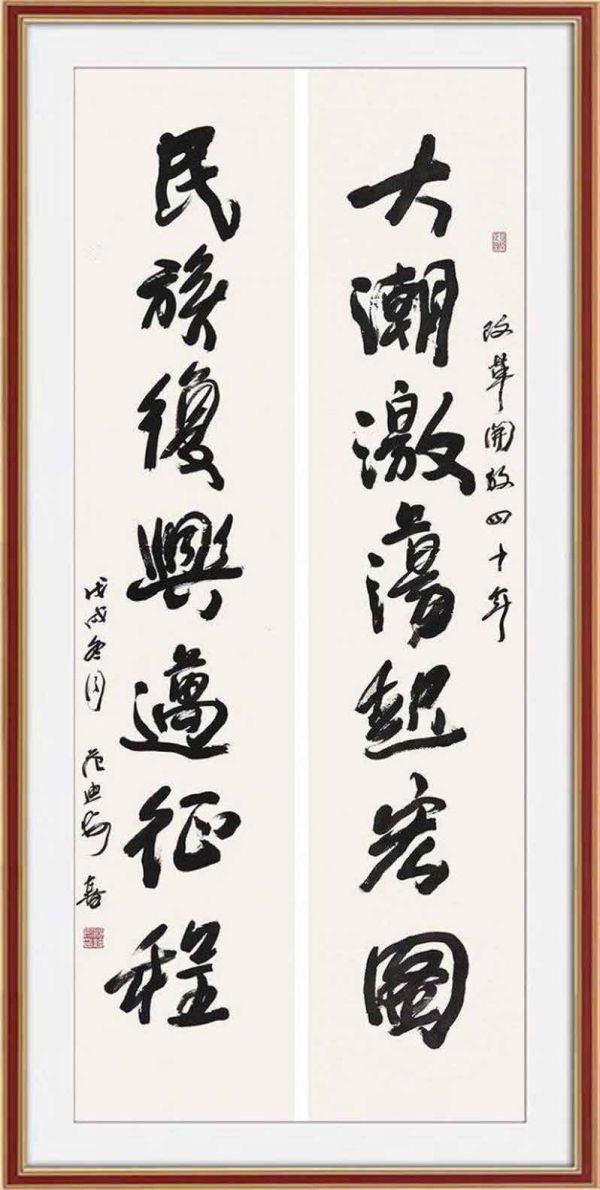 改革開放四十年
大潮激蕩起宏圖
民族復興邁征程
戊戌冬月 范迪安書